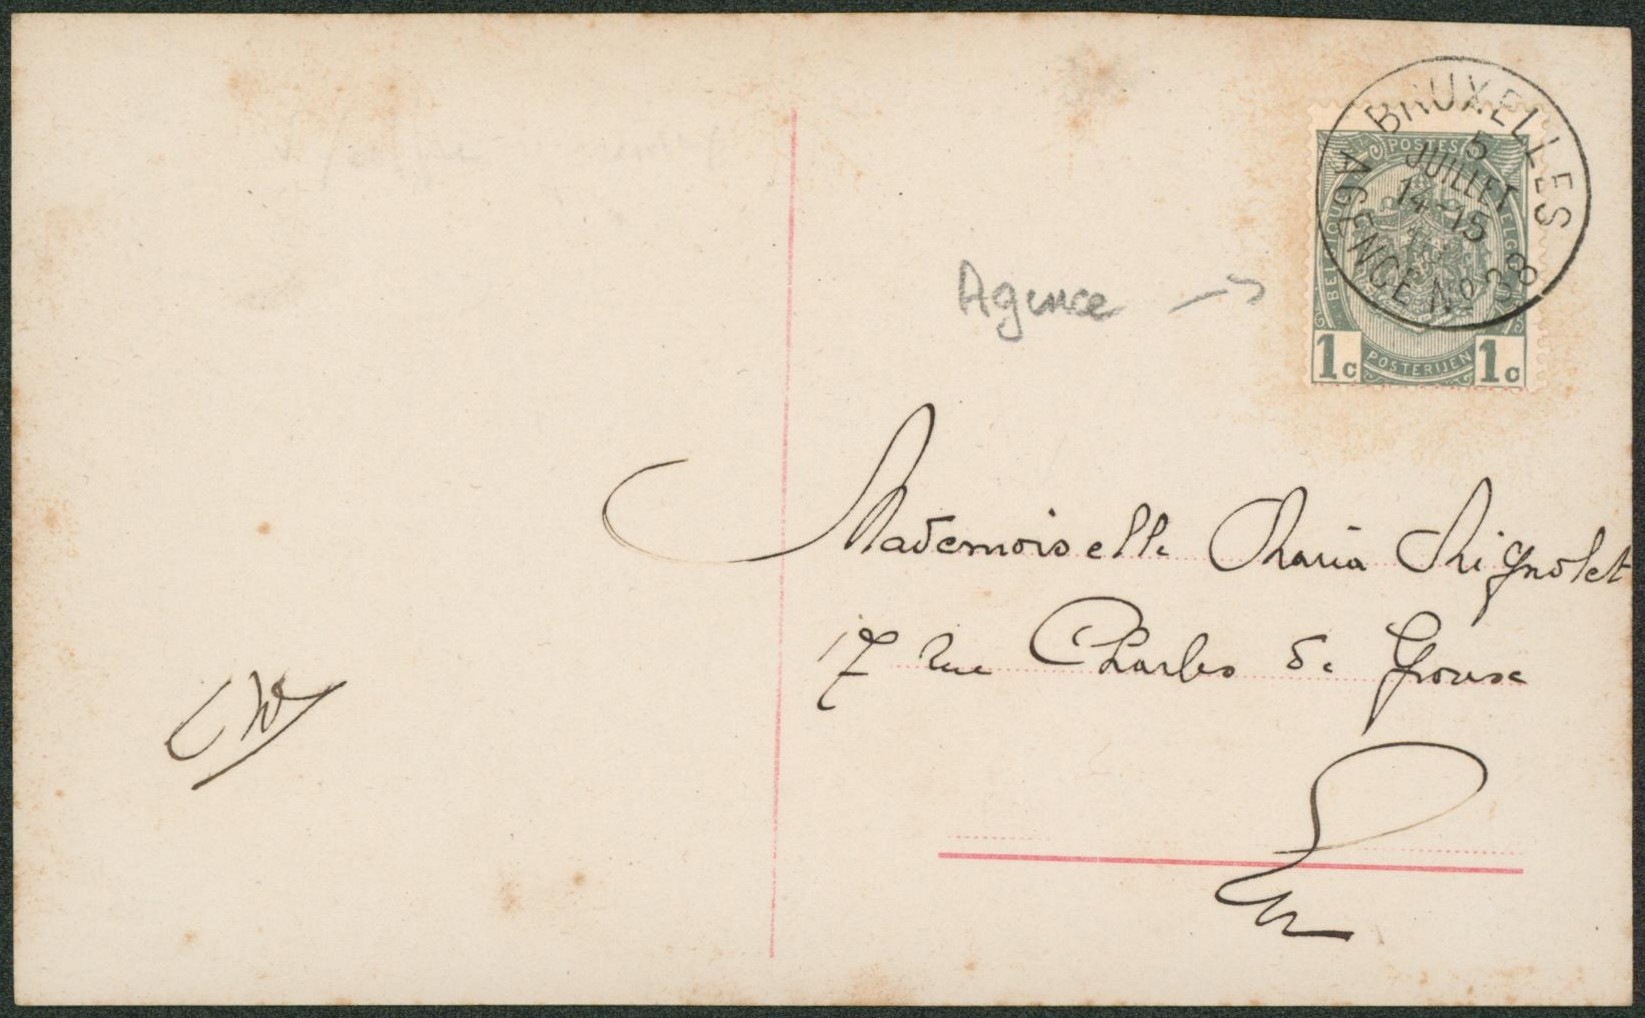 BRUXELLES
5
JUILLET
14-15
AGENCE No 38
POSTES
BELGIQUE
1c POSTERIJEN 1c
Agence →
Mademoiselle Maria Mignolet
17 rue Charles de Groux